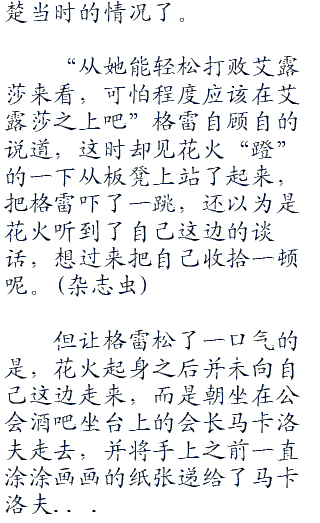 楚当时的情况了。
“从她能轻松打败艾露
莎来看，可怕程度应该在艾
露莎之上吧”格雷自顾自的
说道，这时却见花火“蹬”
的一下从板凳上站了起来，
把格雷吓了一跳，还以为是
花火听到了自己这边的谈
话，想过来把自己收拾一顿
呢。(杂志虫)
但让格雷松了一口气的
是，花火起身之后并未向自
己这边走来，而是朝坐在公
会酒吧坐台上的会长马卡洛
夫走去，并将手上之前一直
涂涂画画的纸张递给了马卡
洛夫...